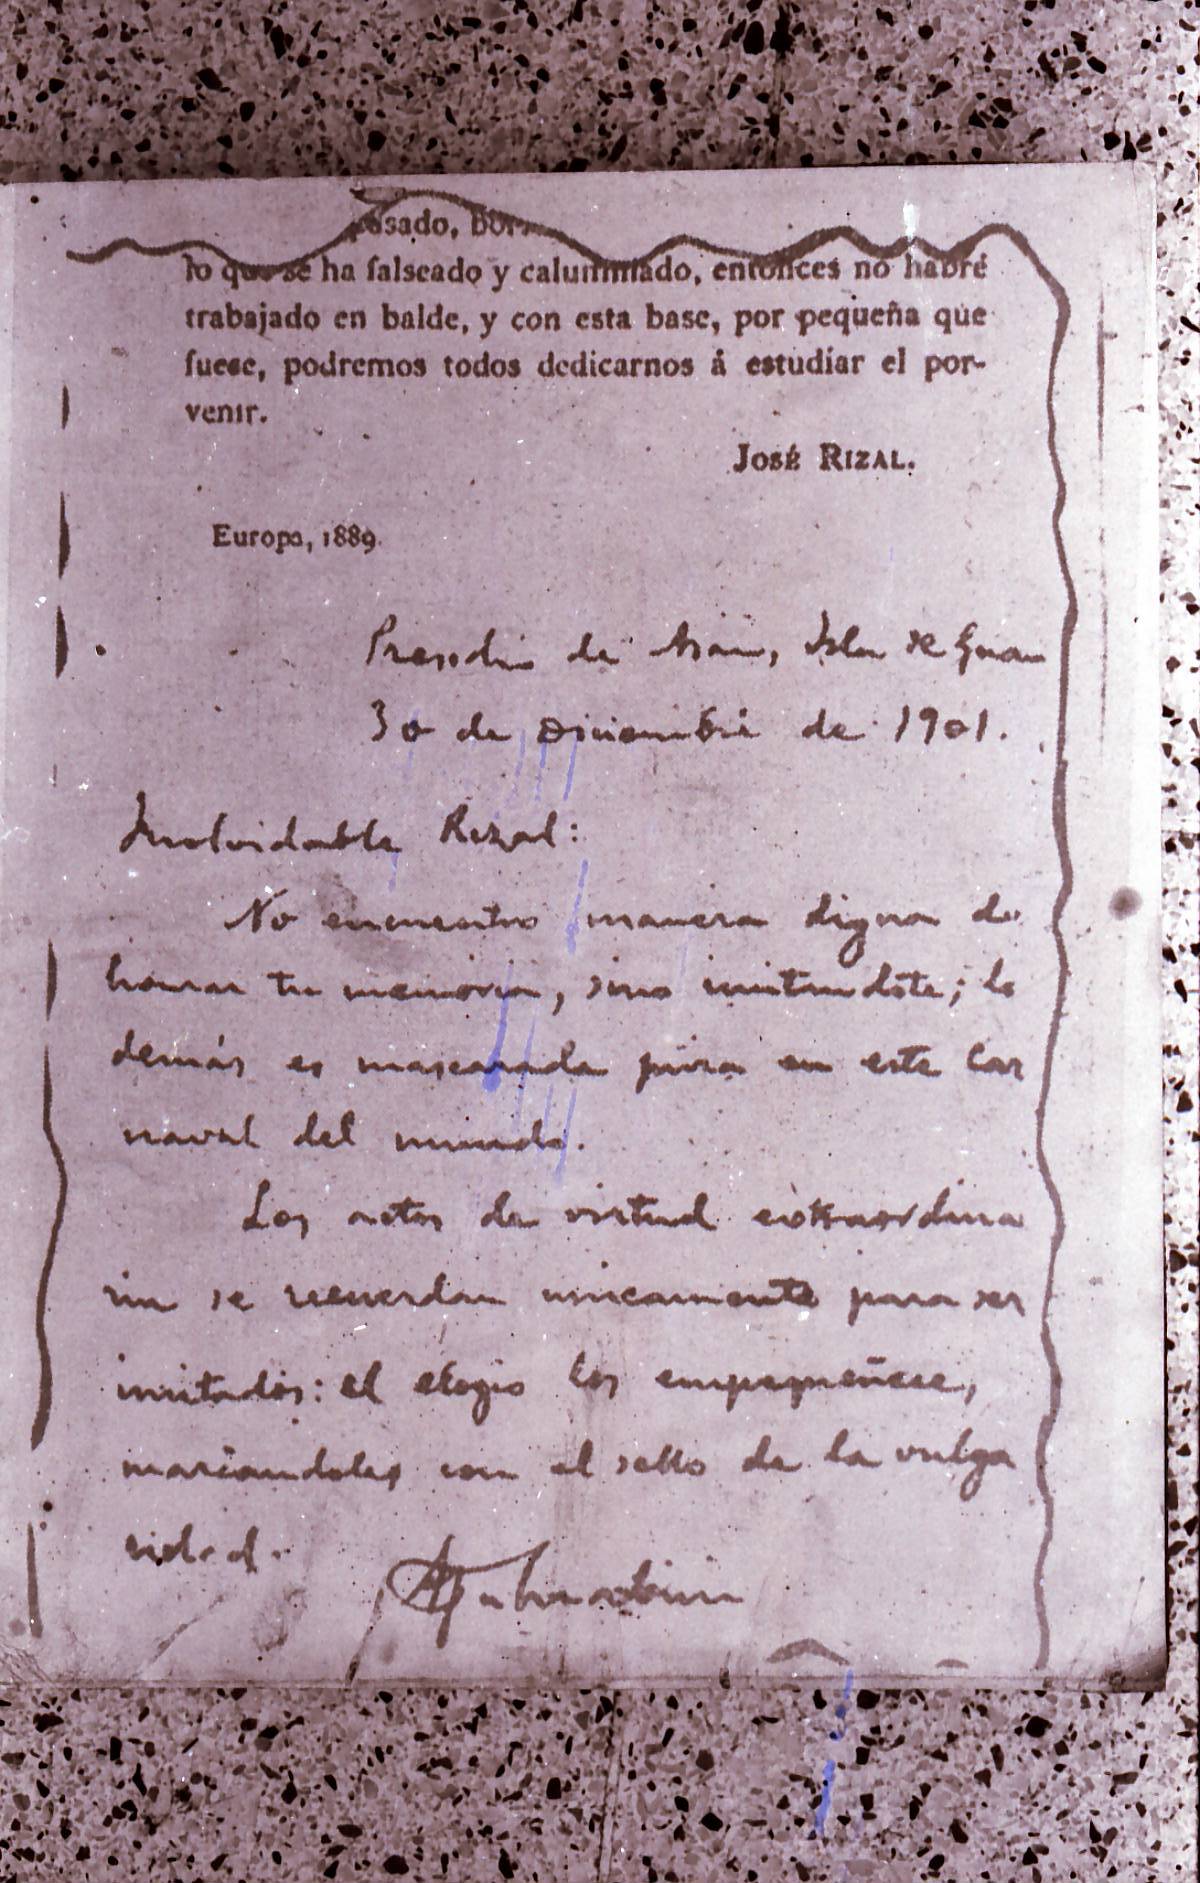 pasado, bor
lo que se ha falseado y calumniado, entonces no habré
trabajado en balde, y con esta base, por pequeña que
fuese, podremos todos dedicarnos á estudiar el por-
venir.
JOSÉ RIZAL.
Europa, 1889.
Presidio de Asan, Isla de Guam
30 de Diciembre de 1901.
Inolvidable Rizal:
No encuentro manera digna de
honrar tu memoria, sino imitandote; lo
demás es mascarada pura en este car
naval del mundo.
Los actos de virtud extraordina
ria se recuerdan unicamente para ser
imitados: el elogio los empequeñece,
marcandoles con el sello de la vulga
ridad.